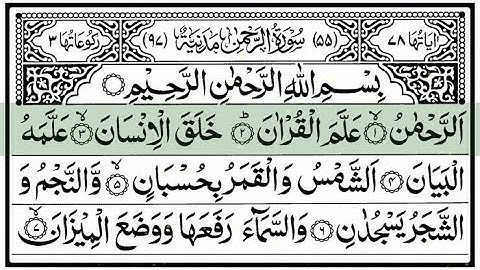 اٰیَاتُهَا ٧٨ (٥٥) سُوْرَةُ الرَّحْمٰنِ مَدَنِیَّةٌ (٩٧) رُكُوْعَاتُهَا ٣
بِسْمِ اللّٰهِ الرَّحْمٰنِ الرَّحِیْمِ
اَلرَّحْمٰنُ ۙ﴿١﴾ عَلَّمَ الْقُرْاٰنَ ؕ﴿٢﴾ خَلَقَ الْاِنْسَانَ ۙ﴿٣﴾ عَلَّمَهُ
الْبَیَانَ ﴿٤﴾ اَلشَّمْسُ وَالْقَمَرُ بِحُسْبَانٍ ۪﴿٥﴾ وَّالنَّجْمُ وَ
الشَّجَرُ یَسْجُدٰنِ ﴿٦﴾ وَالسَّمَآءَ رَفَعَهَا وَوَضَعَ الْمِیْزَانَ ۙ﴿٧﴾